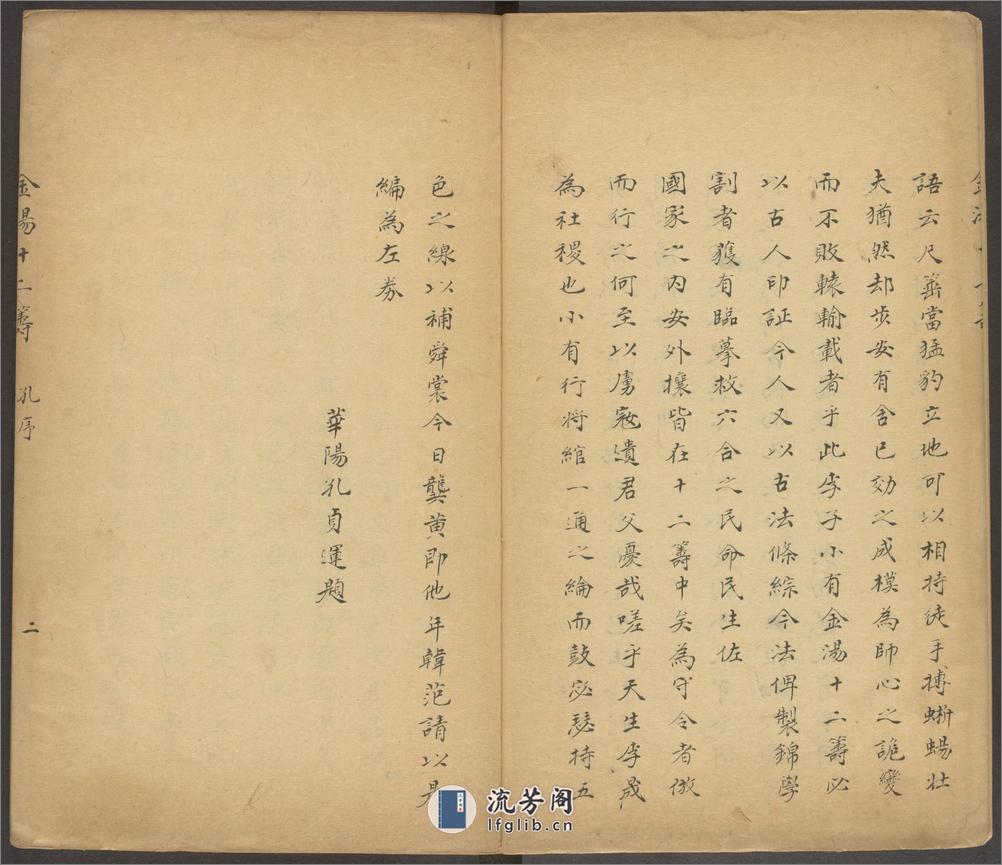 語云尺箠當猛豹立地可以相持徒手搏蜥蜴壯
夫猶然却步安有舍已効之成模為師心之詭變
而不敗轅輸載者乎此李子小有金湯十二籌必
以古人印証今人又以古法條綜今法俾製錦學
割者獲有臨摹救六合之民命民生佐
國家之內安外攘皆在十二籌中矣為守令者倣
而行之何至以虜寇遺君父憂哉嗟乎天生李晟
為社稷也小有行將綰一通之綸而鼓宓瑟持五
色之線以補舜裳今日龔黃即他年韓范請以是
編為左券
華陽孔貞運題
金湯十二籌 孔序
二
流芳阁
lfglib.cn